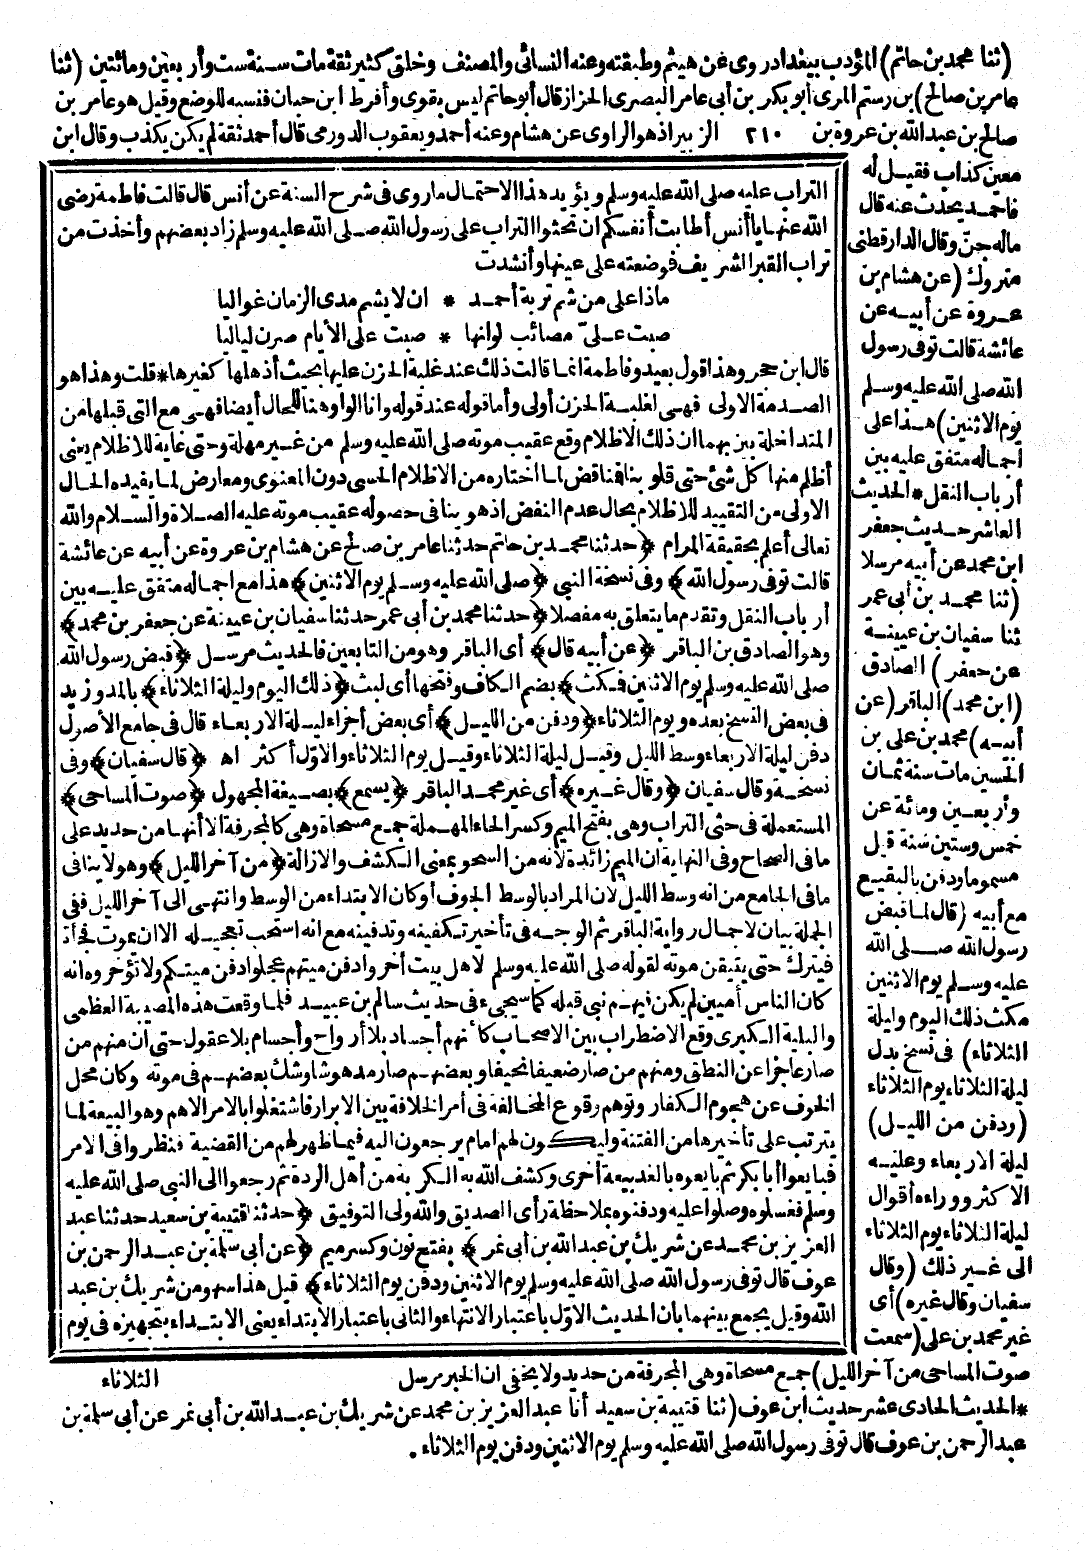 (ثنا محمد بن حاتم) المؤدب ببغداد روى عن هيثم وطبقته وعنه النسائي والمصنف وخلق كثير ثقة مات سنة ست وأربعين ومائتين (ثنا
عامر بن صالح) بن رستم المرى أبو بكر بن أبي عامر البصرى الخزاز قال أبو حاتم ليس بقوى وأفرط ابن حبان فنسبه للوضع وقيل هو عامر بن
صالح بن عبد الله بن عروة بن ٢١٠ الزبير اذ هو الراوى عن هشام وعنه أحمد ويعقوب الدورمى قال أحمد ثقة لم يكن يكذب وقال ابن
معين كذاب فقيل له
فاحمد يحدث عنه قال
ماله جن وقال الدارقطنى
متروك (عن هشام بن
عروة عن أبيه عن
عائشة قالت توفى رسول
الله صلى الله عليه وسلم
يوم الاثنين) هذا على
اجماله متفق عليه بين
أرباب النقل * الحديث
العاشر حديث جعفر
ابن محمد عن أبيه مرسلا
(ثنا محمد بن أبى عمر
ثنا سفيان بن عيينة
عن جعفر) الصادق
(ابن محمد) الباقر (عن
أبيه) محمد بن على بن
الحسين مات سنة ثمان
وأربعين ومائة عن
خمس وستين سنة قيل
مسموما ودفن بالبقيع
مع أبيه (قال لما قبض
رسول الله صلى الله
عليه وسلم يوم الاثنين
مكث ذلك اليوم وليلة
الثلاثاء) فى نسخ بدل
ليلة الثلاثاء يوم الثلاثاء
(ودفن من الليل)
ليلة الاربعاء وعليه
الاكثر ووراءه أقوال
ليلة الثلاثاء يوم الثلاثاء
الى غير ذلك (وقال
سفيان وقال غيره) أى
غير محمد بن على (سمعت
التراب عليه صلى الله عليه وسلم ويؤيد هذا الاحتمال ما روى فى شرح السنة عن أنس قال قالت فاطمة رضى
الله عنها يا أنس أطابت أنفسكم ان تحثوا التراب على رسول الله صلى الله عليه وسلم زاد بعضهم وأخذت من
تراب القبر الشريف فوضعته على عينها وأنشدت
ماذا على من شم تربة أحمد * ان لا يشم مدى الزمان غواليا
صبت على مصائب لوانها * صبت على الأيام صرن لياليا
قال ابن حجر وهذا قول بعيد وفاطمة انما قالت ذلك عند غلبة الحزن عليها بحيث أذهلها كغيرها * قلت وهذا هو
الصدمة الاولى فهى لغلبة الحزن أولى وأما قوله عند قوله وانا الواو هنا للحال أيضا فهى مع التى قبلها من
المتداخلة بين بهما ان ذلك الاظلام وقع عقيب موته صلى الله عليه وسلم من غير مهلة وحتى غاية للاظلام يعنى
أظلم منها كل شئ حتى قلوبنا فناقض لما اختاره من الاظلام الحسى دون المعنوى ومعارض لما يفيده الحال
الاولى من التقييد للاظلام بحال عدم النفض اذ هو ينافى حصوله عقيب موته عليه الصلاة والسلام والله
تعالى أعلم بحقيقة المرام ﴿حدثنا محمد بن حاتم حدثنا عامر بن صالح عن هشام بن عروة عن أبيه عن عائشة
قالت توفى رسول الله﴾ وفى نسخة النبى ﴿صلى الله عليه وسلم يوم الاثنين﴾ هذا مع اجماله متفق عليه بين
أرباب النقل وتقدم ما يتعلق به مفصلا ﴿حدثنا محمد بن أبى عمر حدثنا سفيان بن عيينة عن جعفر بن محمد﴾
وهو الصادق بن الباقر ﴿عن أبيه قال﴾ أى الباقر وهو من التابعين فالحديث مرسل ﴿قبض رسول الله
صلى الله عليه وسلم يوم الاثنين فمكث﴾ بضم الكاف وفتحها أى لبث ﴿ذلك اليوم وليلة الثلاثاء﴾ بالمد وزيد
فى بعض النسخ بعده ويوم الثلاثاء ﴿ودفن من الليل﴾ أى بعض أجزاء ليلة الاربعاء قال فى جامع الأصول
دفن ليلة الاربعاء وسط الليل وقيل ليلة الثلاثاء وقيل يوم الثلاثاء والاوّل أكثر اه ﴿قال سفيان﴾ وفى
نسخة وقال سفيان ﴿وقال غيره﴾ أى غير محمد الباقر ﴿يسمع﴾ بصيغة المجهول ﴿صوت المساحى﴾
المستعملة فى حثى التراب وهى بفتح الميم وكسر الحاء المهملة جمع مسحاة وهى كالمجرفة الا أنها من حديد على
ما فى الصحاح وفى النهاية ان الميم زائدة لأنه من السحو بمعنى الكشف والازالة ﴿من آخر الليل﴾ وهو لا ينافى
ما فى الجامع من انه وسط الليل لان المراد بالوسط الجوف أو كان الابتداء من الوسط وانتهى الى آخر الليل ففى
الجملة بيان لاجمال رواية الباقر ثم الوجه فى تأخير تكفينه وتدفينه مع انه استحب تعجيله الا ان يموت فجأة
فيترك حتى يتيقن موته لقوله صلى الله عليه وسلم لاهل بيت أخروا دفن ميتهم عجلوا دفن ميتكم ولا تؤخروه انه
كان الناس أميين لم يكن فيهم نبى قبله كما سيجىء فى حديث سالم بن عبيد فلما وقعت هذه المصيبة العظمى
والبلية الكبرى وقع الاضطراب بين الاصحاب كأنهم أجساد بلا أرواح وأجسام بلا عقول حتى ان منهم من
صار عاجزا عن النطق ومنهم من صار ضعيفا نحيفا وبعضهم صار مدهوشا وشك بعضهم فى موته وكان محل
الخوف عن هجوم الكفار وتوهم وقوع المخالفة فى أمر الخلافة بين الابرار فاشتغلوا بالامر الاهم وهو البيعة لما
يترتب على تأخيرها من الفتنة وليكون لهم امام يرجعون اليه فيما ظهر لهم من القضية فنظروا فى الامر
فبايعوا أبا بكر ثم بايعوه بالغد بيعة أخرى وكشف الله به الكربة من أهل الردة ثم رجعوا الى النبى صلى الله عليه
وسلم فغسلوه وصلوا عليه ودفنوه بملاحظة رأى الصديق والله ولى التوفيق ﴿حدثنا قتيبة بن سعيد حدثنا عبد
العزيز بن محمد عن شريك بن عبد الله بن أبى نمر﴾ بفتح نون وكسر ميم ﴿عن أبى سلمة بن عبد الرحمن بن
عوف قال توفى رسول الله صلى الله عليه وسلم يوم الاثنين ودفن يوم الثلاثاء﴾ قيل هذا سهو من شريك بن عبد
الله وقيل يجمع بينهما بأن الحديث الاوّل باعتبار الانتهاء والثانى باعتبار الابتداء يعنى الابتداء بتجهيزه فى يوم
الثلاثاء
صوت المساحى من آخر الليل) جمع مسحاة وهى المجرفة من حديد ولا يخفى ان الخبر مرسل
* الحديث الحادى عشر حديث ابن عوف (ثنا قتيبة بن سعيد أنا عبد العزيز بن محمد عن شريك بن عبد الله بن أبى نمر عن أبى سلمة بن
عبد الرحمن بن عوف قال توفى رسول الله صلى الله عليه وسلم يوم الاثنين ودفن يوم الثلاثاء .